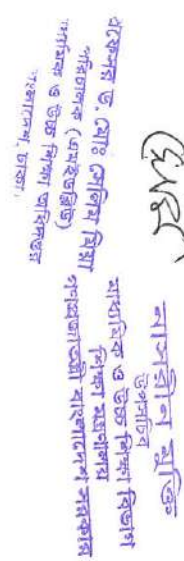 নাসরীন মুক্তি
উপসচিব
মাধ্যমিক ও উচ্চ শিক্ষা বিভাগ
শিক্ষা মন্ত্রণালয়
গণপ্রজাতন্ত্রী বাংলাদেশ সরকার
প্রফেসর ড. মোঃ সেলিম মিয়া
পরিচালক (এমইউব্লিউ)
মাধ্যমিক ও উচ্চ শিক্ষা অধিদপ্তর
বাংলাদেশ, ঢাকা।